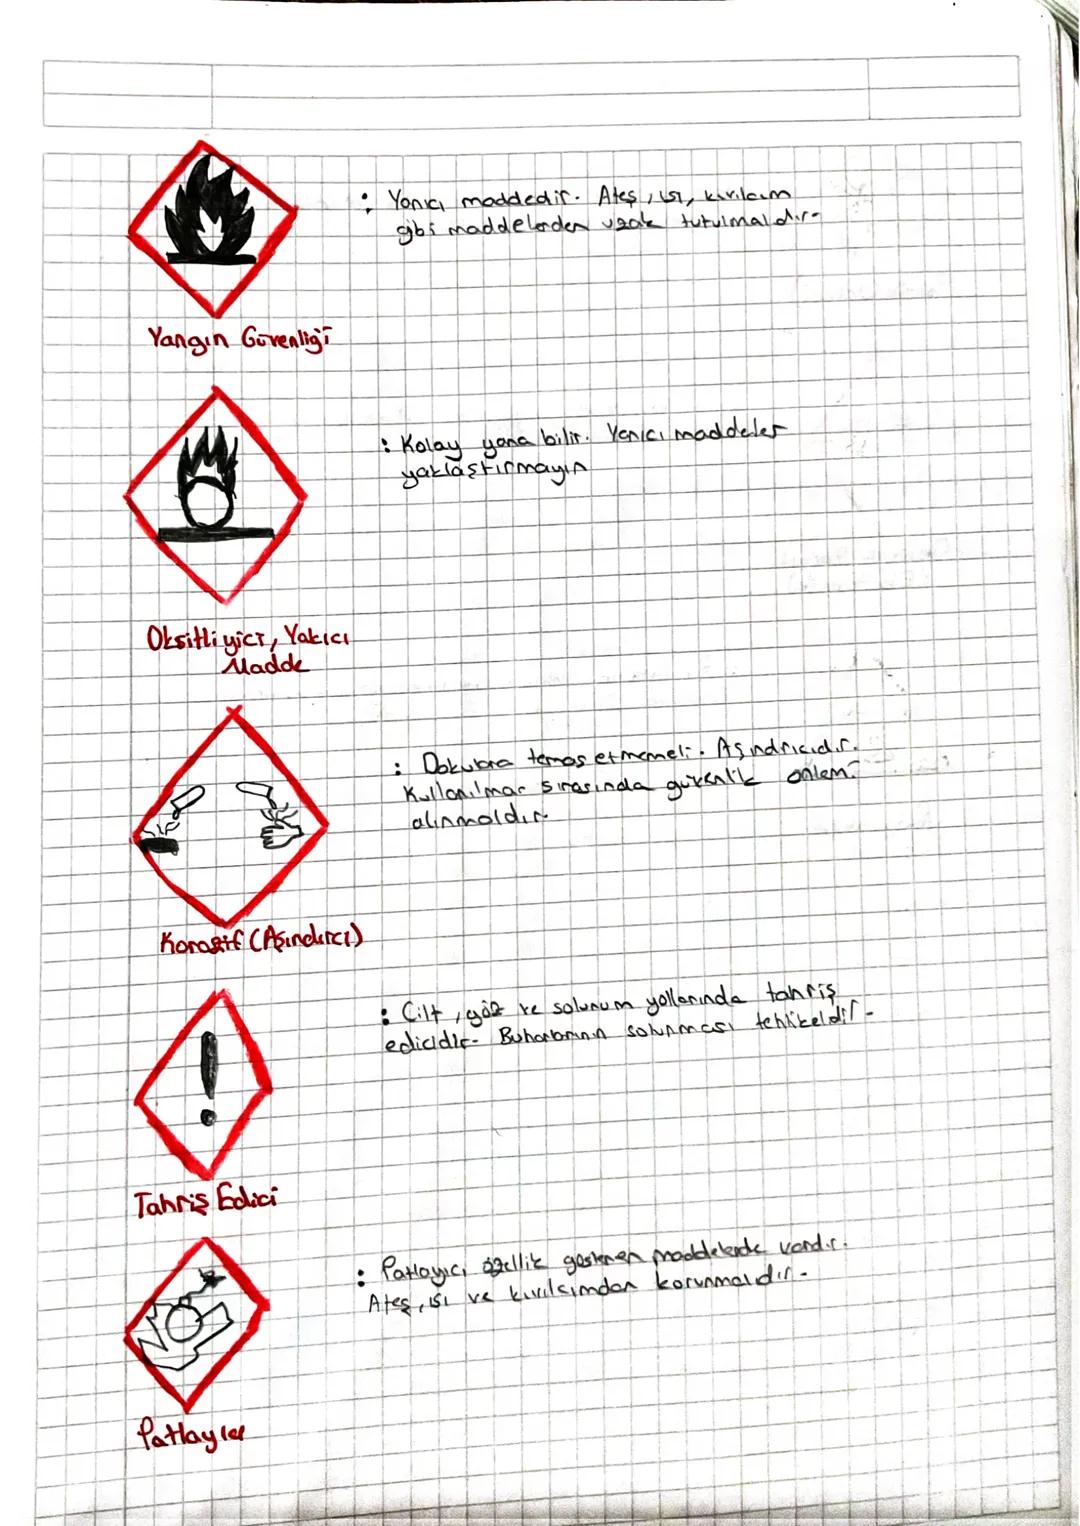 : Yanıcı maddedir. Ateş, ısı, kıvılcım
gibi maddelerden uzak tutulmalıdır-
Yangın Güvenliği
: Kolay yana bilir. Yanıcı maddeler
yaklaştırmayın
Oksitliyici, Yakıcı
Madde
: Dokulara temas etmemeli. Aşındrıcıdır.
Kullanılmar sırasında güvenlik önlemi
alınmaldır
Korozif (Aşındırcı)
: Cilt, göz ve solunum yollarında tahriş
edicidir- Buharlarının solunması tehlikeldir-
Tahriş Edici
: Patlayıcı özellik gösteren maddelerde vardır.
Ateş, ısı ve kıvılcımdan korunmalıdır-
Patlayıcı